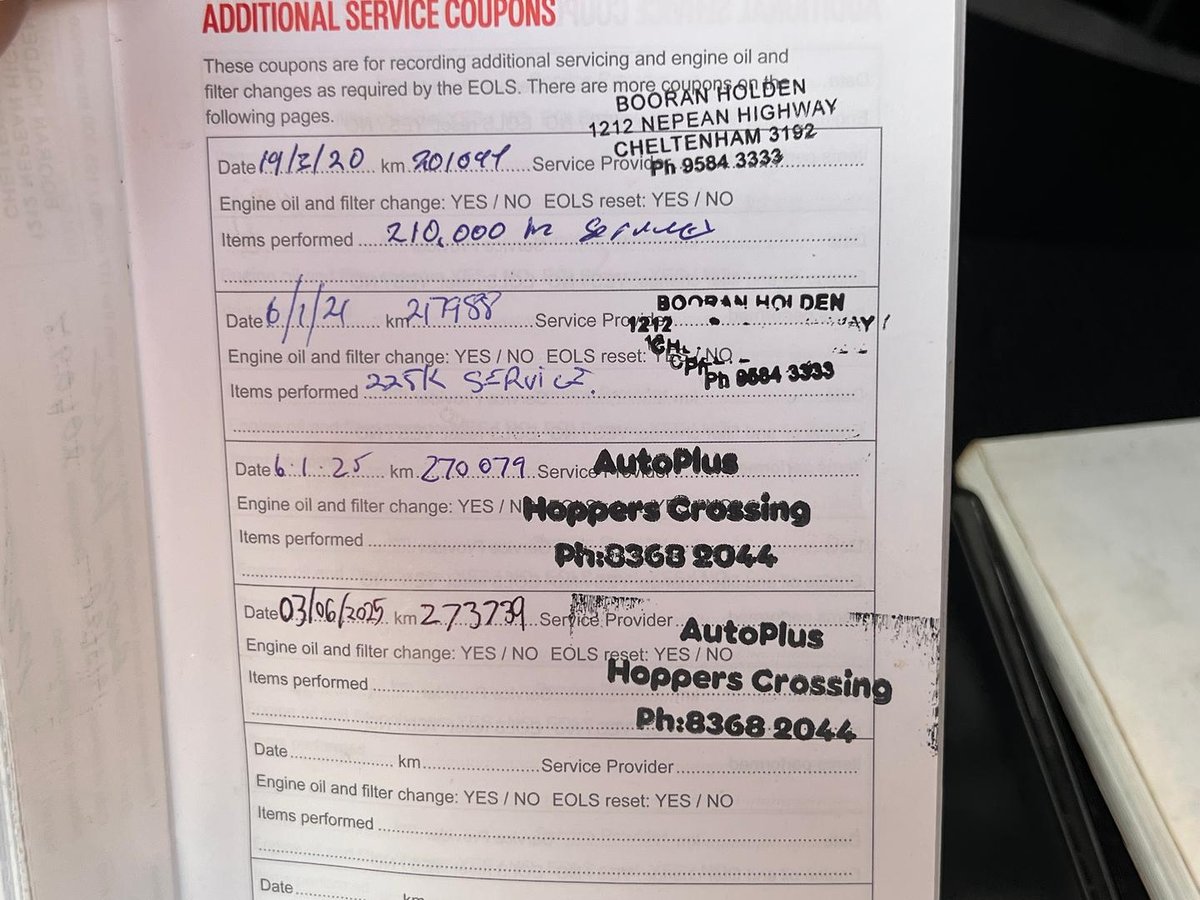 ADDITIONAL SERVICE COUPONS
These coupons are for recording additional servicing and engine oil and
filter changes as required by the EOLS. There are more coupons on the
following pages.
BOORAN HOLDEN
1212 NEPEAN HIGHWAY
CHELTENHAM 3192
Ph 9584 3333
Date 19/3/20 km 201094 Service Provider
Engine oil and filter change: YES / NO EOLS reset: YES / NO
Items performed 210,000 km Service
BOORAN HOLDEN
Date 6/1/21 km 217988 Service Provider
1212
Engine oil and filter change: YES / NO EOLS reset: YES / NO
Ph 9584 3333
Items performed 225K SERVICE.
AutoPlus
Date 6.1.25 km 270079 Service Provider
Hoppers Crossing
Engine oil and filter change: YES / NO EOLS reset: YES / NO
Ph:8368 2044
Items performed
Date 03/06/2025 km 273739 Service Provider
AutoPlus
Engine oil and filter change: YES / NO EOLS reset: YES / NO
Hoppers Crossing
Items performed
Ph:8368 2044
Date km Service Provider
Engine oil and filter change: YES / NO EOLS reset: YES / NO
Items performed
Date km